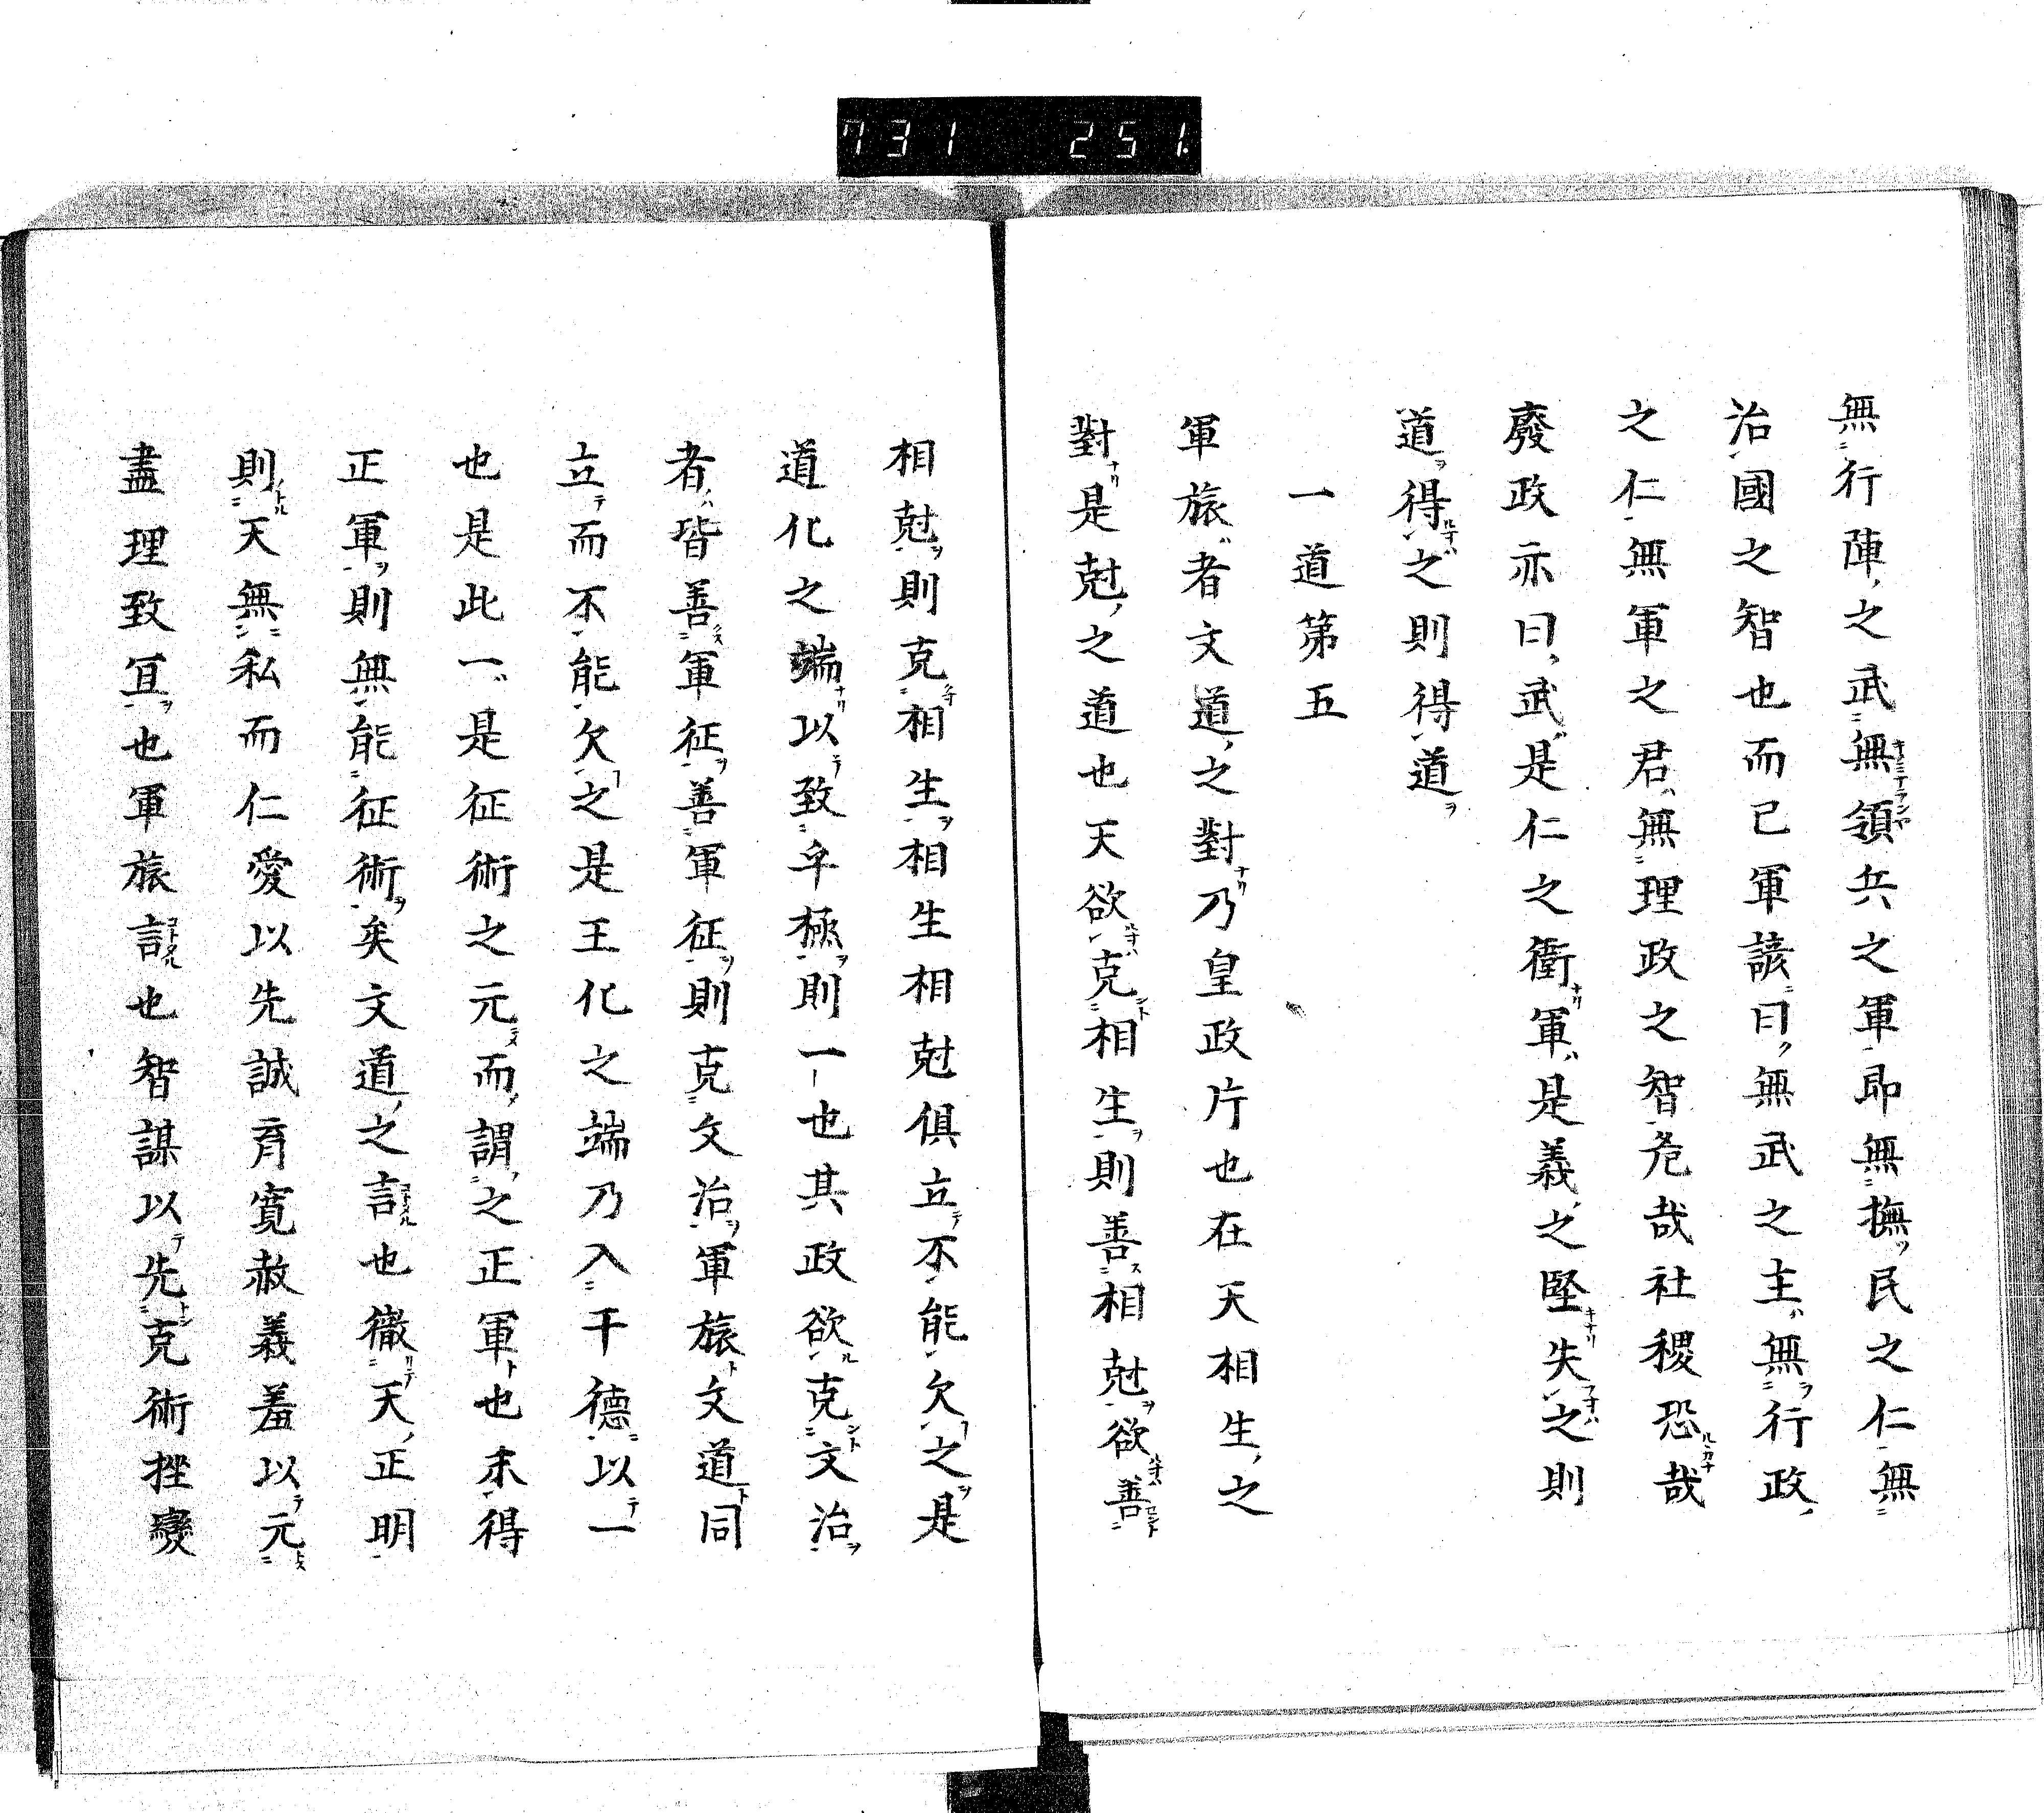 731 251
無行陣之武無領兵之軍即無撫民之仁無
治國之智也而已軍諺曰無武之主無行政
之仁無軍之君無理政之智危哉社稷恐哉
廢政亦曰武是仁之衝軍是義之堅失之則
道得之則得道
一道第五
軍旅者文道之對乃皇政片也在天相生之
對是尅之道也天欲克相生則善相尅欲善
相尅則克相生相生相尅俱立不能欠之是
道化之端以致卒極則一也其政欲克文治
者皆善軍征善軍征則克文治軍旅文道同
立而不能欠之是王化之端乃入于德以一
也是此一是征術之元而謂之正軍也未得
正軍則無能征術矣文道之言也徹天正明
則天無私而仁愛以先誠育寬赦義羞以元
盡理致冝也軍旅言也智謀以先克術挫變